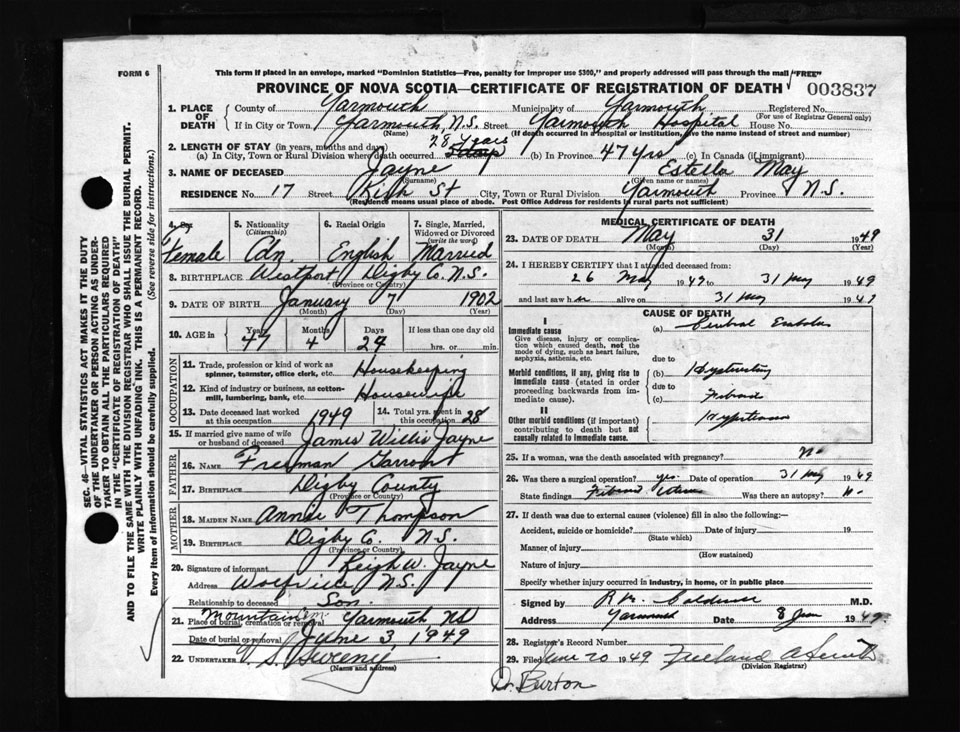 FORM 6
This form if placed in an envelope, marked "Dominion Statistics—Free, penalty for improper use $300," and properly addressed will pass through the mail "FREE"
PROVINCE OF NOVA SCOTIA—CERTIFICATE OF REGISTRATION OF DEATH
003837
1. PLACE OF DEATH
County of Yarmouth (Name) Municipality of Yarmouth Registered No. (For use of Registrar General only)
If in City or Town Yarmouth, N.S. Street Yarmouth Hospital House No.
(If death occurred in a hospital or institution, give the name instead of street and number)
2. LENGTH OF STAY (in years, months and days)
(a) In City, Town or Rural Division where death occurred 28 years (b) In Province 47 yrs (c) In Canada (if immigrant)
3. NAME OF DECEASED Jayne (Surname) Estella May (Given name or names)
RESIDENCE No. 17 Street Kirk St City, Town or Rural Division Yarmouth Province N.S.
(Residence means usual place of abode. Post Office Address for residents in rural parts not sufficient)
4. Sex Female
5. Nationality (Citizenship) Cdn.
6. Racial Origin English
7. Single, Married, Widowed or Divorced (write the word) Married
8. BIRTHPLACE Westport Digby Co. N.S.
(Province or Country)
9. DATE OF BIRTH January 7 1902
(Month) (Day) (Year)
10. AGE in Years 47 Months 4 Days 24 If less than one day old hrs. or min.
OCCUPATION
11. Trade, profession or kind of work as spinner, teamster, office clerk, etc. Housekeeping
12. Kind of industry or business, as cotton-mill, lumbering, bank, etc. Housewife
13. Date deceased last worked at this occupation 1949
14. Total yrs. spent in this occupation 28
15. If married give name of wife or husband of deceased James Willis Jayne
FATHER
16. NAME Freeman
17. BIRTHPLACE Digby County
(Province or Country)
MOTHER
18. MAIDEN NAME Annie Thompson
19. BIRTHPLACE Digby C. N.S.
(Province or Country)
20. Signature of informant Leigh W. Jayne
Address Wolfville N.S.
Relationship to deceased Son.
21. Place of burial, cremation or removal Mountain Cem. Yarmouth NS
Date of burial or removal June 3, 1949
22. UNDERTAKER V. S. Sweeny
(Name and address)
MEDICAL CERTIFICATE OF DEATH
23. DATE OF DEATH May 31 1949
(Month) (Day) (Year)
24. I HEREBY CERTIFY that I attended deceased from:
26 May 1949 to 31 May 1949
and last saw h er alive on 31 May 1949
CAUSE OF DEATH
I
Immediate cause
Give disease, injury or complication which caused death, not the mode of dying, such as heart failure, asphyxia, asthenia, etc.
(a) Cerebral Embolus
due to
Morbid conditions, if any, giving rise to immediate cause (stated in order proceeding backwards from immediate cause).
(b) Hysterectomy
due to
(c) Fibroid
II
Other morbid conditions (if important) contributing to death but not causally related to immediate cause.
Hypertension
25. If a woman, was the death associated with pregnancy? No
26. Was there a surgical operation? yes. Date of operation 31 May 1949
State findings Fibroid Uterus Was there an autopsy? No
27. If death was due to external causes (violence) fill in also the following:—
Accident, suicide or homicide? Date of injury 19
(State which)
Manner of injury
(How sustained)
Nature of injury
Specify whether injury occurred in industry, in home, or in public place
Signed by M.D.
Address Yarmouth Date 8 June 1949
28. Registrar's Record Number
29. Filed June 20 1949
(Division Registrar)
Dr. Burton
SEC. 46—VITAL STATISTICS ACT MAKES IT THE DUTY
OF THE UNDERTAKER OR PERSON ACTING AS UNDER-
TAKER TO OBTAIN ALL THE PARTICULARS REQUIRED
IN THE "CERTIFICATE OF REGISTRATION OF DEATH"
AND TO FILE THE SAME WITH THE DIVISION REGISTRAR WHO SHALL ISSUE THE BURIAL PERMIT.
WRITE PLAINLY WITH UNFADING INK. THIS IS A PERMANENT RECORD.
Every item of information should be carefully supplied. (See reverse side for instructions.)